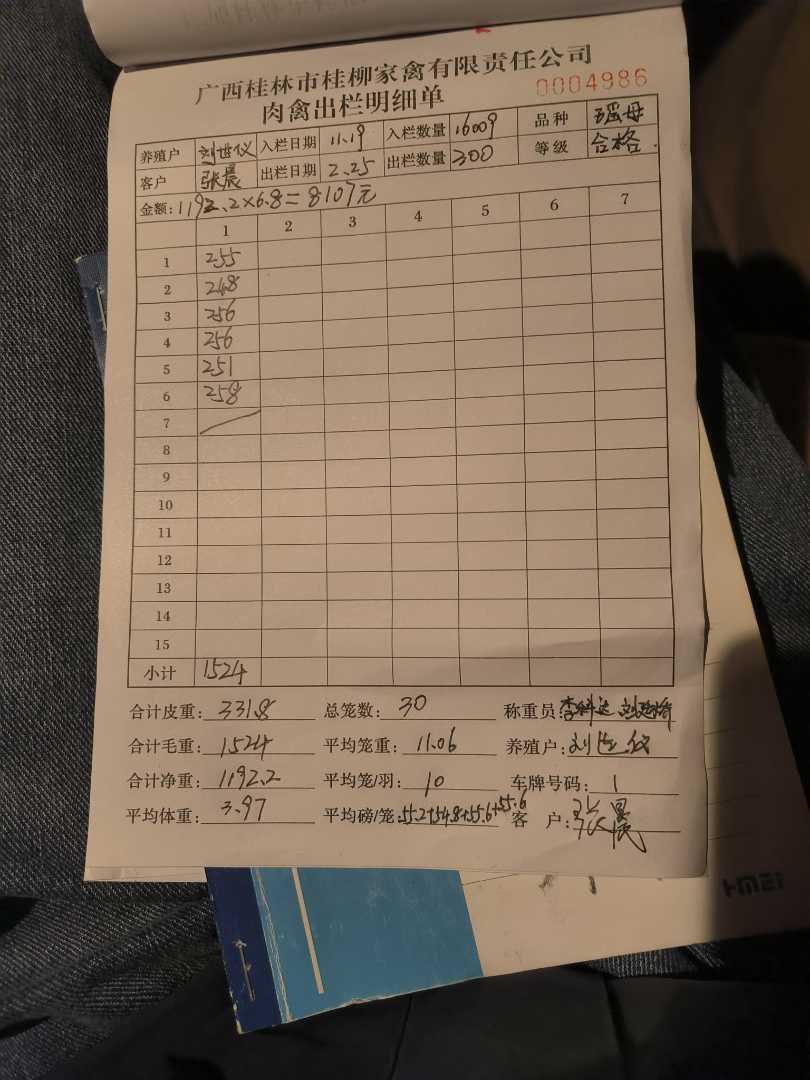 广西桂林市桂柳家禽有限责任公司
肉禽出栏明细单 0004986
养殖户 刘世仪 入栏日期 11.19 入栏数量 16009 品种 瑶母
客户 张晨 出栏日期 2.25 出栏数量 300 等级 合格.
金额:1192.2×6.8=8107元
1 2 3 4 5 6 7
1 255
2 248
3 256
4 256
5 251
6 258
7
8
9
10
11
12
13
14
15
小计 1524
合计皮重: 331.8 总笼数: 30 称重员: 李科达
合计毛重: 1524 平均笼重: 11.06 养殖户: 刘世仪
合计净重: 1192.2 平均笼/羽: 10 车牌号码: 1
平均体重: 3.97 平均磅/笼: 55.2+54.8+55.6+55.6 客 户: 张晨